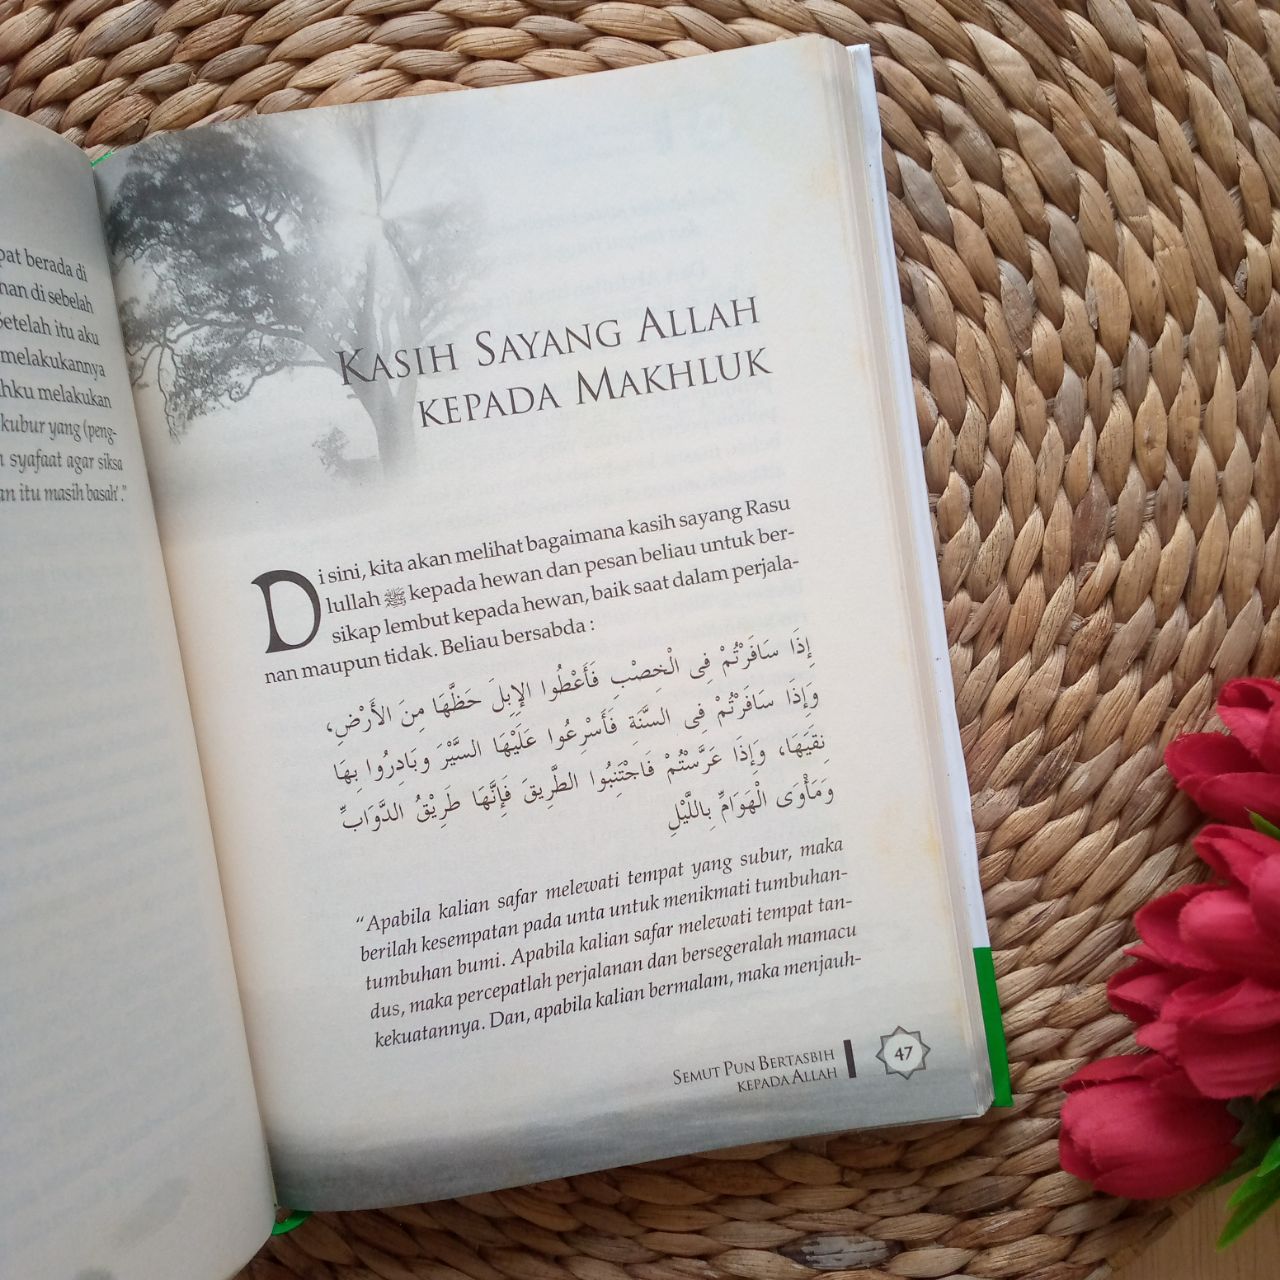 pat berada di
nan di sebelah
Setelah itu aku
melakukannya
ahku melakukan
kubur yang (peng-
n syafaat agar siksa
an itu masih basah'."
KASIH SAYANG ALLAH
KEPADA MAKHLUK
Di sini, kita akan melihat bagaimana kasih sayang Rasu
lullah ﷺ kepada hewan dan pesan beliau untuk ber-
sikap lembut kepada hewan, baik saat dalam perjala-
nan maupun tidak. Beliau bersabda :
إِذَا سَافَرْتُمْ فِى الْخِصْبِ فَأَعْطُوا الإِبِلَ حَظَّهَا مِنَ الأَرْضِ،
وَإِذَا سَافَرْتُمْ فِى السَّنَةِ فَأَسْرِعُوا عَلَيْهَا السَّيْرَ وَبَادِرُوا بِهَا
نِقْيَهَا، وَإِذَا عَرَّسْتُمْ فَاجْتَنِبُوا الطَّرِيقَ فَإِنَّهَا طَرِيْقُ الدَّوَابِّ
وَمَأْوَى الْهَوَامِّ بِاللَّيْلِ
"Apabila kalian safar melewati tempat yang subur, maka
berilah kesempatan pada unta untuk menikmati tumbuhan-
tumbuhan bumi. Apabila kalian safar melewati tempat tan-
dus, maka percepatlah perjalanan dan bersegeralah mamacu
kekuatannya. Dan, apabila kalian bermalam, maka menjauh-
SEMUT PUN BERTASBIH
KEPADA ALLAH
47